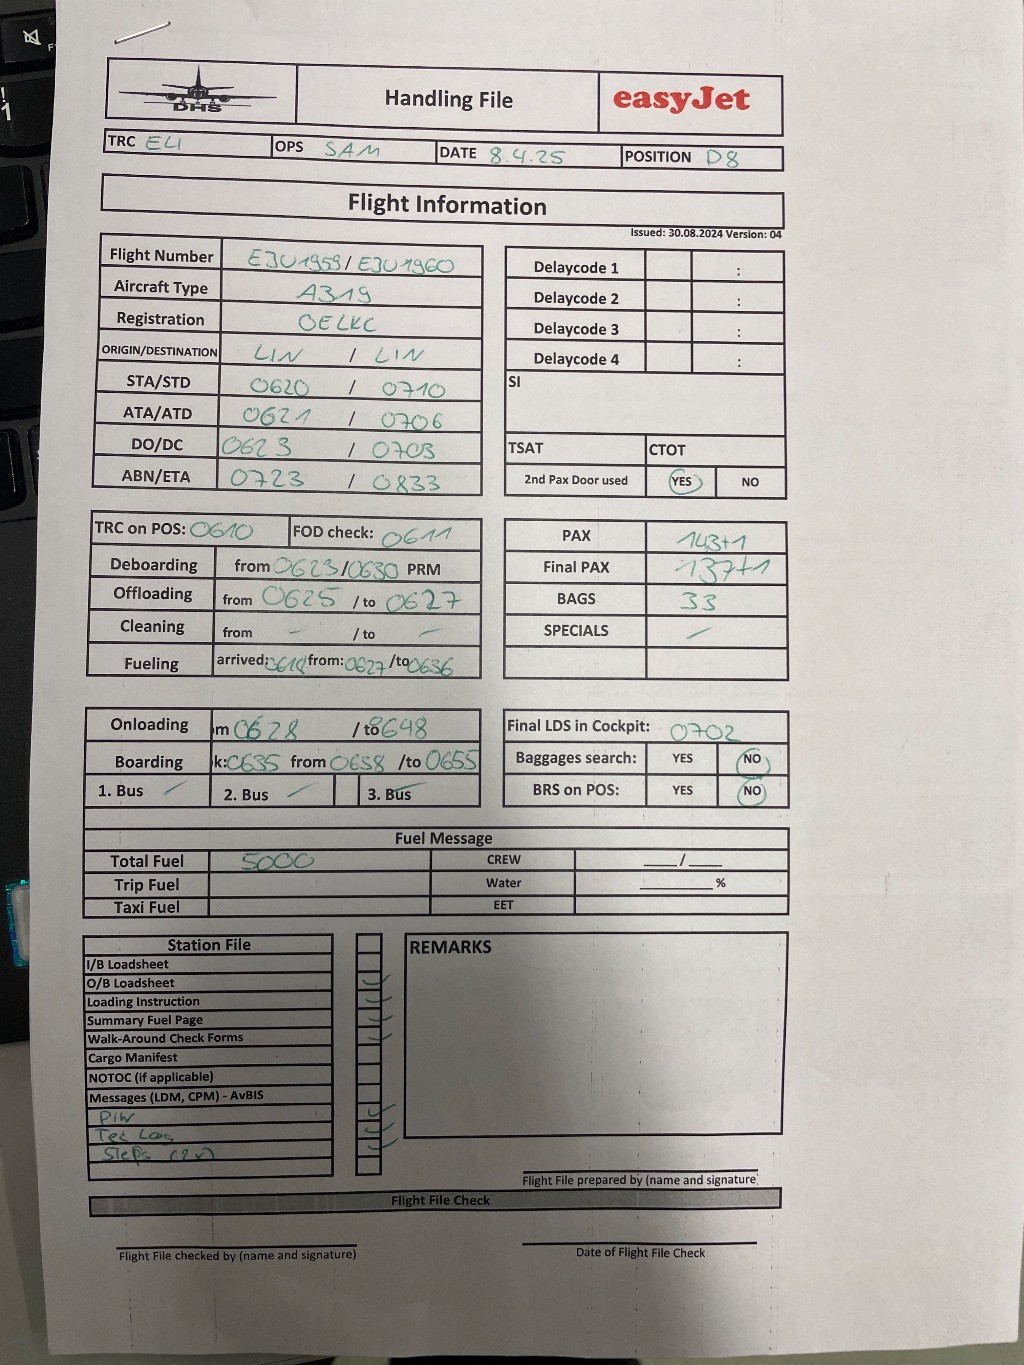 DHS
Handling File
easyJet
TRC ELI OPS SAM DATE 8.4.25 POSITION D8
Flight Information
Issued: 30.08.2024 Version: 04
Flight Number EJU1959/EJU1960
Aircraft Type A319
Registration OELKC
ORIGIN/DESTINATION LIN / LIN
STA/STD 0620 / 0710
ATA/ATD 0621 / 0706
DO/DC 0623 / 0703
ABN/ETA 0723 / 0833
Delaycode 1 :
Delaycode 2 :
Delaycode 3 :
Delaycode 4 :
SI
TSAT CTOT
2nd Pax Door used YES NO
TRC on POS: 0610 FOD check: 0611
Deboarding from 0623/0630 PRM
Offloading from 0625 /to 0627
Cleaning from – /to –
Fueling arrived: from: 0627 /to 0636
PAX 143+1
Final PAX 137+1
BAGS 33
SPECIALS /
Onloading m 0628 /to 0648
Boarding k: 0635 from 0638 /to 0655
1. Bus / 2. Bus / 3. Bus
Final LDS in Cockpit: 0702
Baggages search: YES NO
BRS on POS: YES NO
Fuel Message
Total Fuel 5000 CREW ___/___
Trip Fuel Water ______%
Taxi Fuel EET
Station File
I/B Loadsheet
O/B Loadsheet ✓
Loading Instruction ✓
Summary Fuel Page ✓
Walk-Around Check Forms ✓
Cargo Manifest
NOTOC (if applicable)
Messages (LDM, CPM) - AvBIS
PIW ✓
Tec Log ✓
Steps (2x) ✓
REMARKS
Flight File prepared by (name and signature
Flight File Check
Flight File checked by (name and signature)
Date of Flight File Check